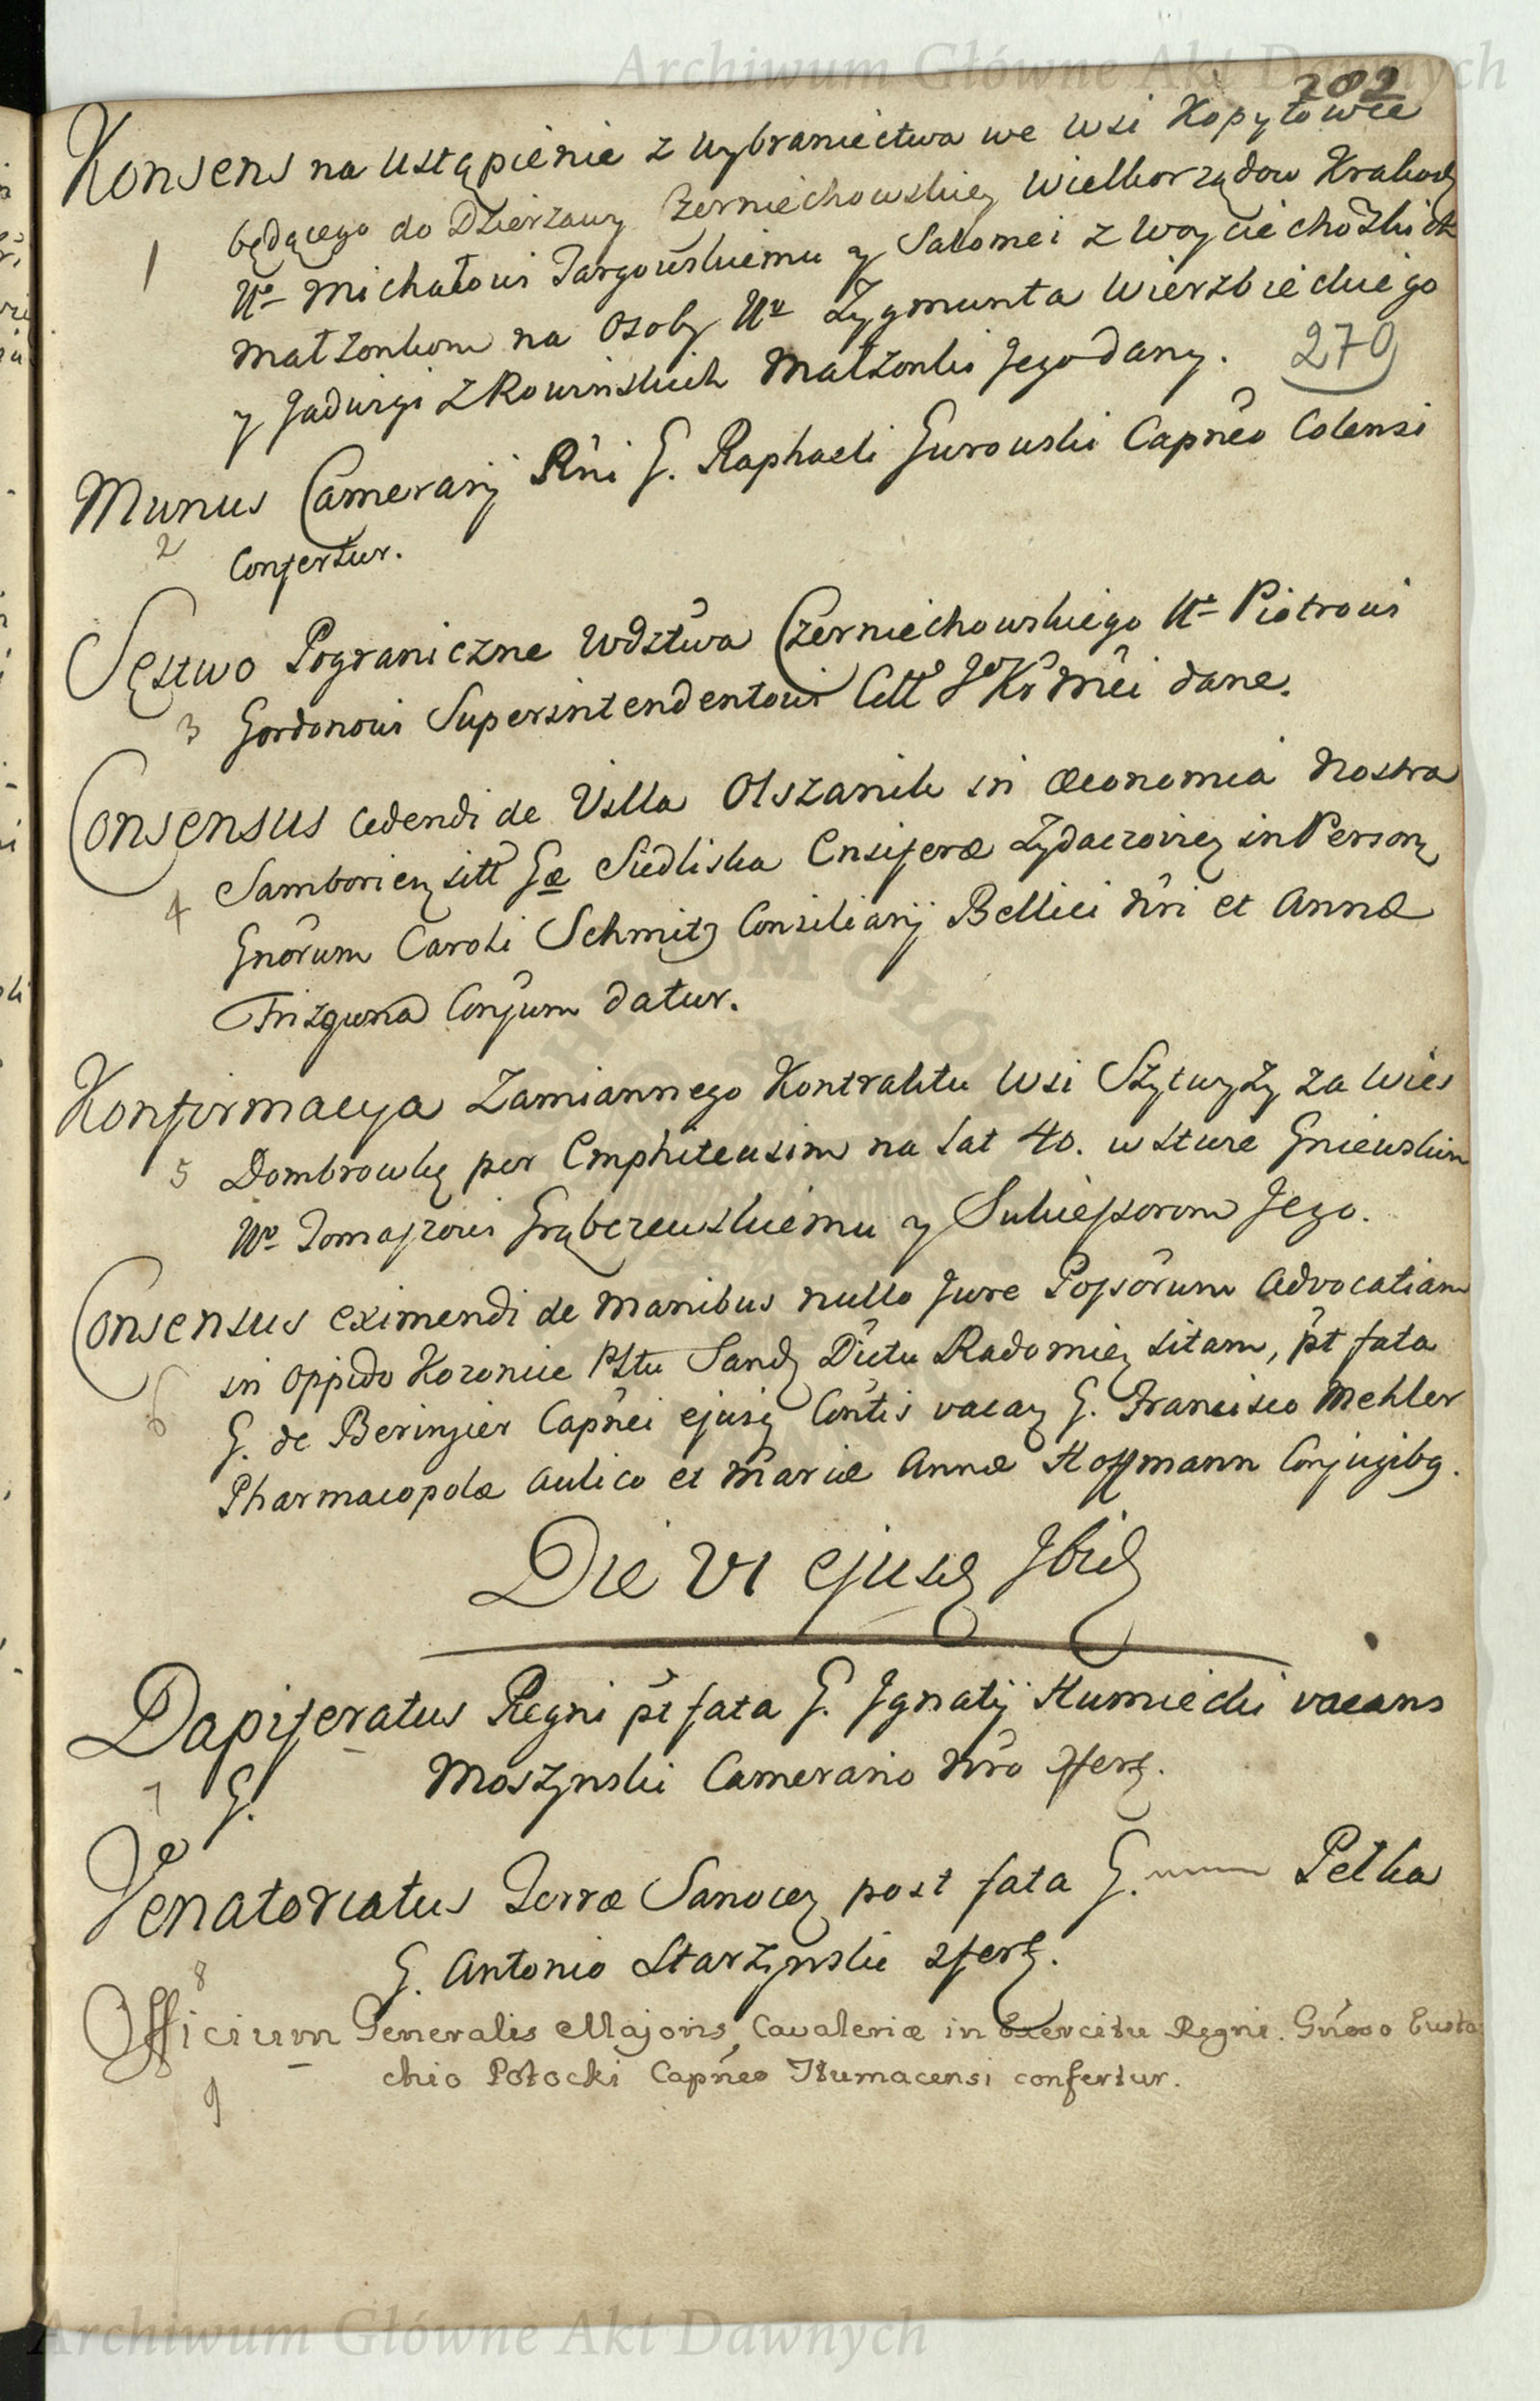 Archiwum Główne Akt Dawnych
202
Konsens na Ustąpienie z Wybraniectwa we Wsi Kopytowce
1 będącego do Dzierżawy Czerniechowskiey Wielkorządow Krakow
Ur Michałowi Targowskiemu y Salomei z Woyciechowskich
Małżonkom na Osoby Ur Zygmunta Wierzbickiego
y Jadwigi z Rowinskich Małżonki Jego dany. 270
Munus Camerarij Rni G. Raphaeli Gurowski Capneo Colensi
2 Confertur.
Sęstwo Pograniczne Wdztwa Czerniechowskiego Ur Piotrowi
3 Gordonowi Superintendentowi Cell Jo Kr Mci dane.
Consensus cedendi de Villa Olszanik in Œconomia Nostra
4 Samborien sitt Gæ Siedliska Ensiferæ Zydaczovien in Person
Gnorum Caroli Schmitz Consiliarij Bellici Nri et Annæ
Conjum datur.
Konfirmacya Zamiannego Kontraktu Wsi Szytwyży za Wieś
5 Dombrowkę per Emphiteusim na lat 40. w Stwie Gniewskim
Ur Tomaszowi Grąbczewskiemu y Sukcessorom Jego.
Consensus eximendi de Manibus nullo Jure Possorum Advocatiam
6 in Oppido Kozonice Plttu Sand Dictu Radomien sitam, pt fata
G. de Beringier Capnei ejusq Contis vacan G. Francisco Mehler
Pharmacopolæ Aulico et Mariæ Annæ Hoffmann Conjugibg.
Die VI ejusd Ibid
Dapiferatus Regni pt fata G. Ignatij Humiecki vacans
7 G. Moszynski Camerario Nro 9fert.
Venatoriatus Terræ Sanocen post fata G. Pełka
8 G. Antonio Starzynski 9fert.
Officium Generalis Majoris, Cavaleriæ in Exercitu Regni. Gnoso Eusta
9 chio Potocki Capneo Tłumacensi confertur.
Archiwum Główne Akt Dawnych